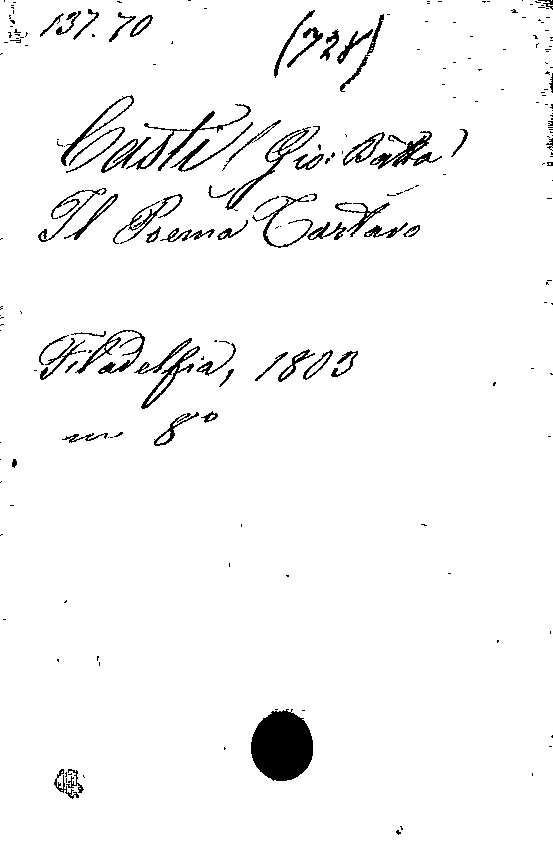 137.70 (728)
Casti (Gio: Batta)
Il Poema Tartaro
Filadelfia, 1803
in 8°